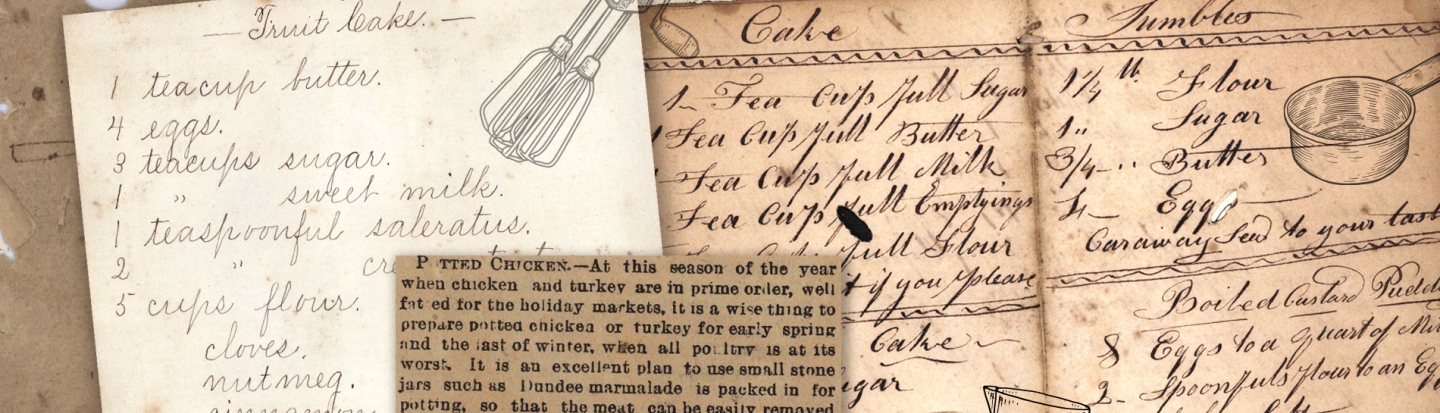 — Fruit Cake. —
1 teacup butter.
4 eggs.
3 teacups sugar.
1 " sweet milk.
1 teaspoonful saleratus.
2 " cre
5 cups flour.
cloves.
nutmeg.
cinnamon
POTTED CHICKEN.—At this season of the year
when chicken and turkey are in prime order, well
fatted for the holiday markets, it is a wise thing to
prepare potted chicken or turkey for early spring
and the last of winter, when all poultry is at its
worst. It is an excellent plan to use small stone
jars such as Dundee marmalade is packed in for
potting, so that the meat can be easily removed
Cake
1 Tea Cup full Sugar
1 Tea Cup full Butter
Tea Cup full Milk
Tea Cup full Emptyings
full Flour
if you please
Cake
ugar
Jumbles
1 1/4 lb. Flour
1 " Sugar
3/4 " Butter
4 Eggs
Caraway Seed to your tast
Boiled Custard Pudd
8 Eggs to a quart of Mil
2 Spoonfuls flour to an Eg